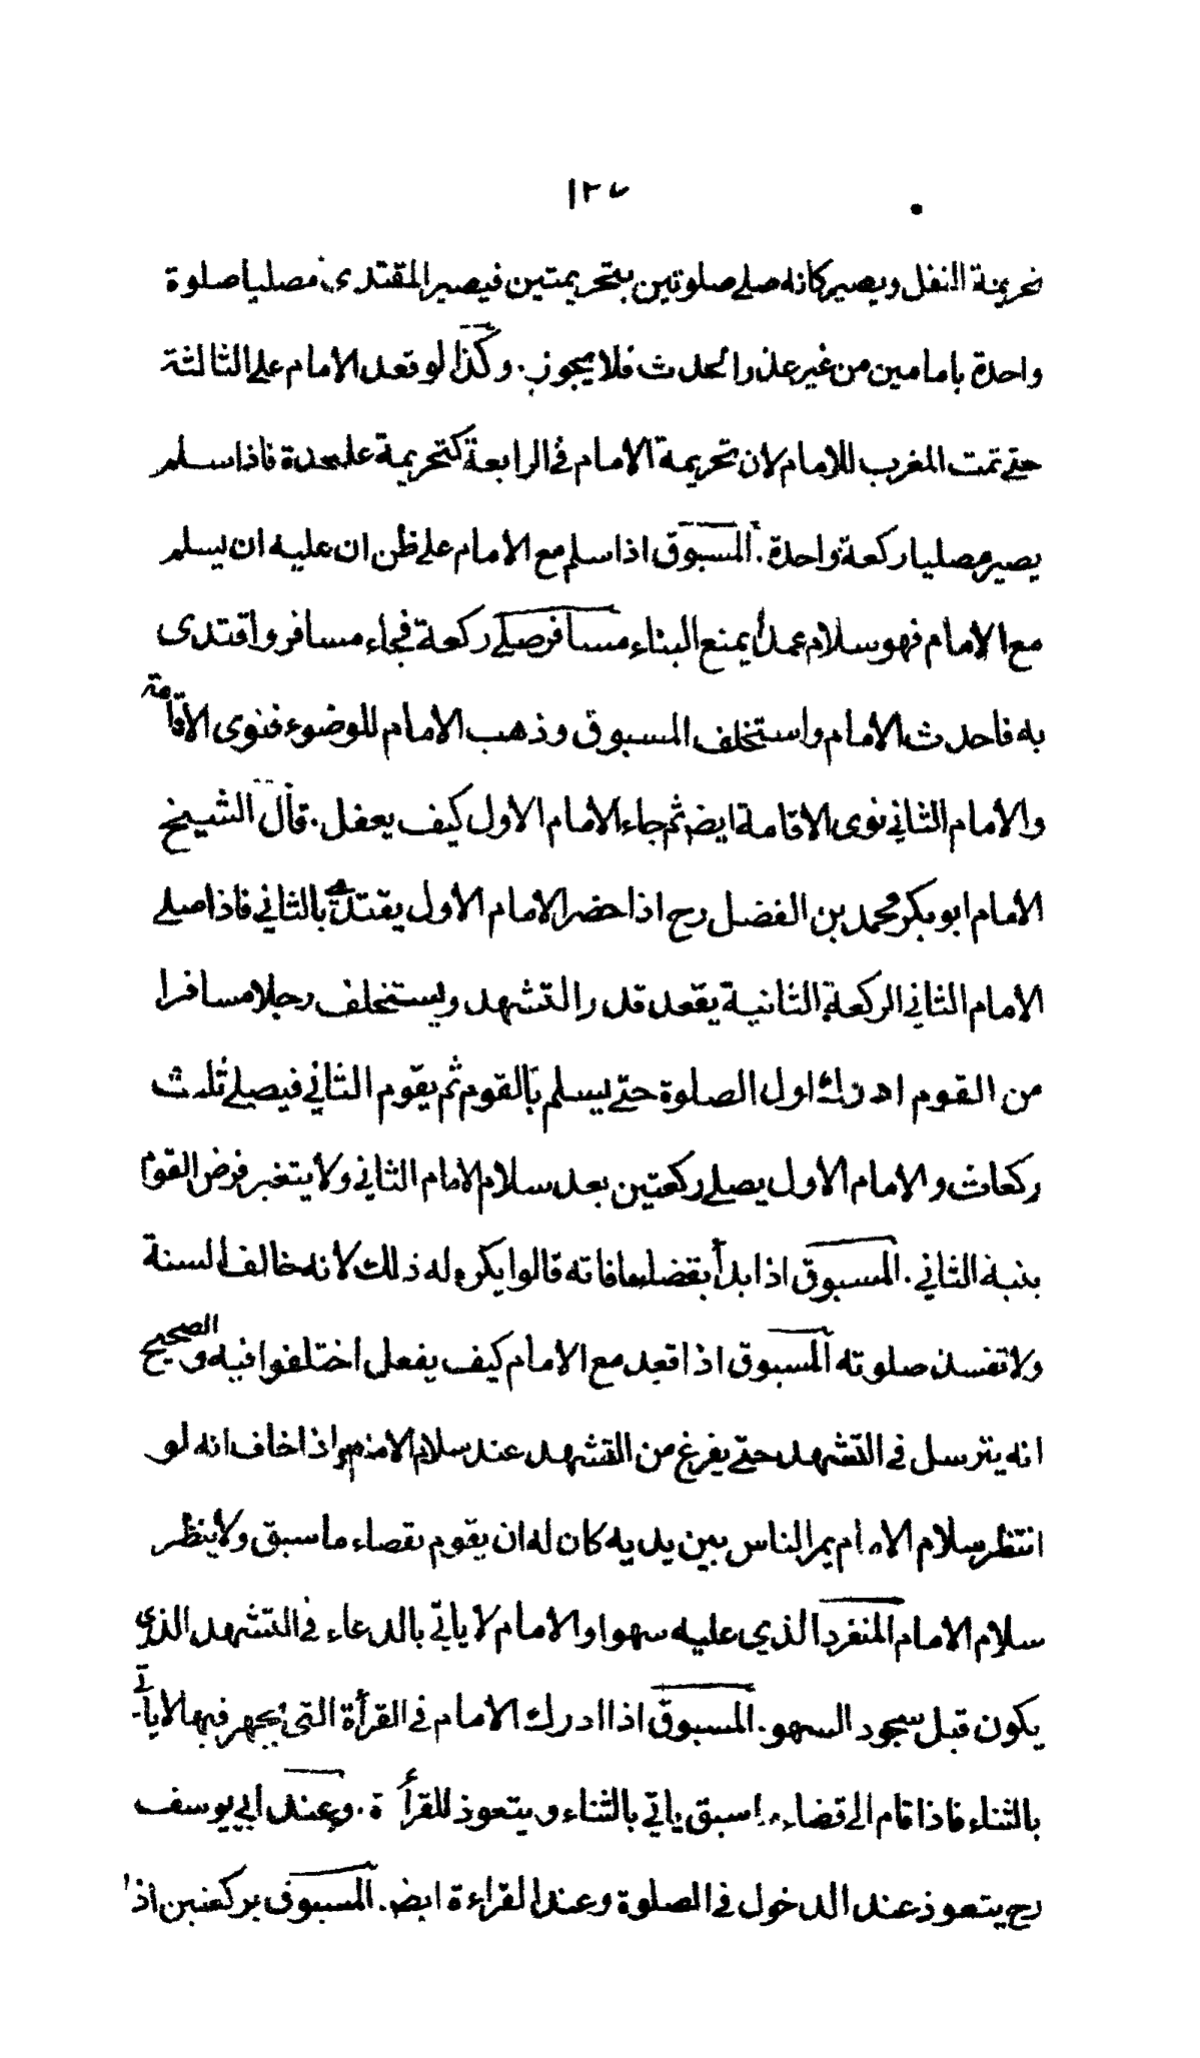 ١٢٧
تحريمة النفل ويصير كانه صلے صلوتين بتحريمتين فيصير المقتدى مصليا صلوة
واحدة بامامين من غير عذر الحدث فلا يجوز. وكذا لو قعد الامام علے الثالثة
حتے تمت المغرب للامام لان تحريمة الامام في الرابعة كتحريمة علىحدة فاذا سلم
يصير مصليا ركعة واحدة. المسبوق اذا سلم مع الامام علے ظن ان عليه ان يسلم
مع الامام فهو سلام عمداً يمنع البناء مسافر صلے ركعة فجاء مسافر واقتدى
به فاحدث الامام واستخلف المسبوق وذهب الامام للوضوء فنوى الاقامة
والامام الثاني نوى الاقامة ايضم ثم جاء الامام الاول كيف يعفل. قال الشيخ
الامام ابو بكر محمد بن الفضل رح اذا حضر الامام الاول يقتدے بالثاني فاذا صلے
الامام الثاني الركعة الثانية يقعد قدر التشهد ويستخلف رجلا مسافرا
من القوم ادرك اول الصلوة حتے يسلم بالقوم ثم يقوم الثاني فيصلے ثلث
ركعات والامام الاول يصلے ركعتين بعد سلام الامام الثاني ولا يتغير فرض القوم
بنية الثاني. المسبوق اذا بدأ بقضاء مافاته قالوا يكره له ذلك لانه خالف السنة
ولا تفسد صلوته المسبوق اذا قعد مع الامام كيف يفعل اختلفوا فيه والصحيح
انه يترسل في التشهد حتے يفرغ من التشهد عند سلام الامام واذا خاف انه لو
انتظر سلام الامام يمر الناس بين يديه كان له ان يقوم بقضاء ما سبق ولا ينظر
سلام الامام المنفرد الذي عليه سهو او الامام لا ياتي بالدعاء في التشهد الذي
يكون قبل سجود السهو. المسبوق اذا ادرك الامام في القرأة التى يجهر فيها لا ياتي
بالثناء فاذا قام الى قضاء ما سبق ياتي بالثناء ويتعوذ للقرأة. وعند ابي يوسف
رح يتعوذ عند الدخول في الصلوة وعند القراءة ايضم. المسبوق بركعتين اذا